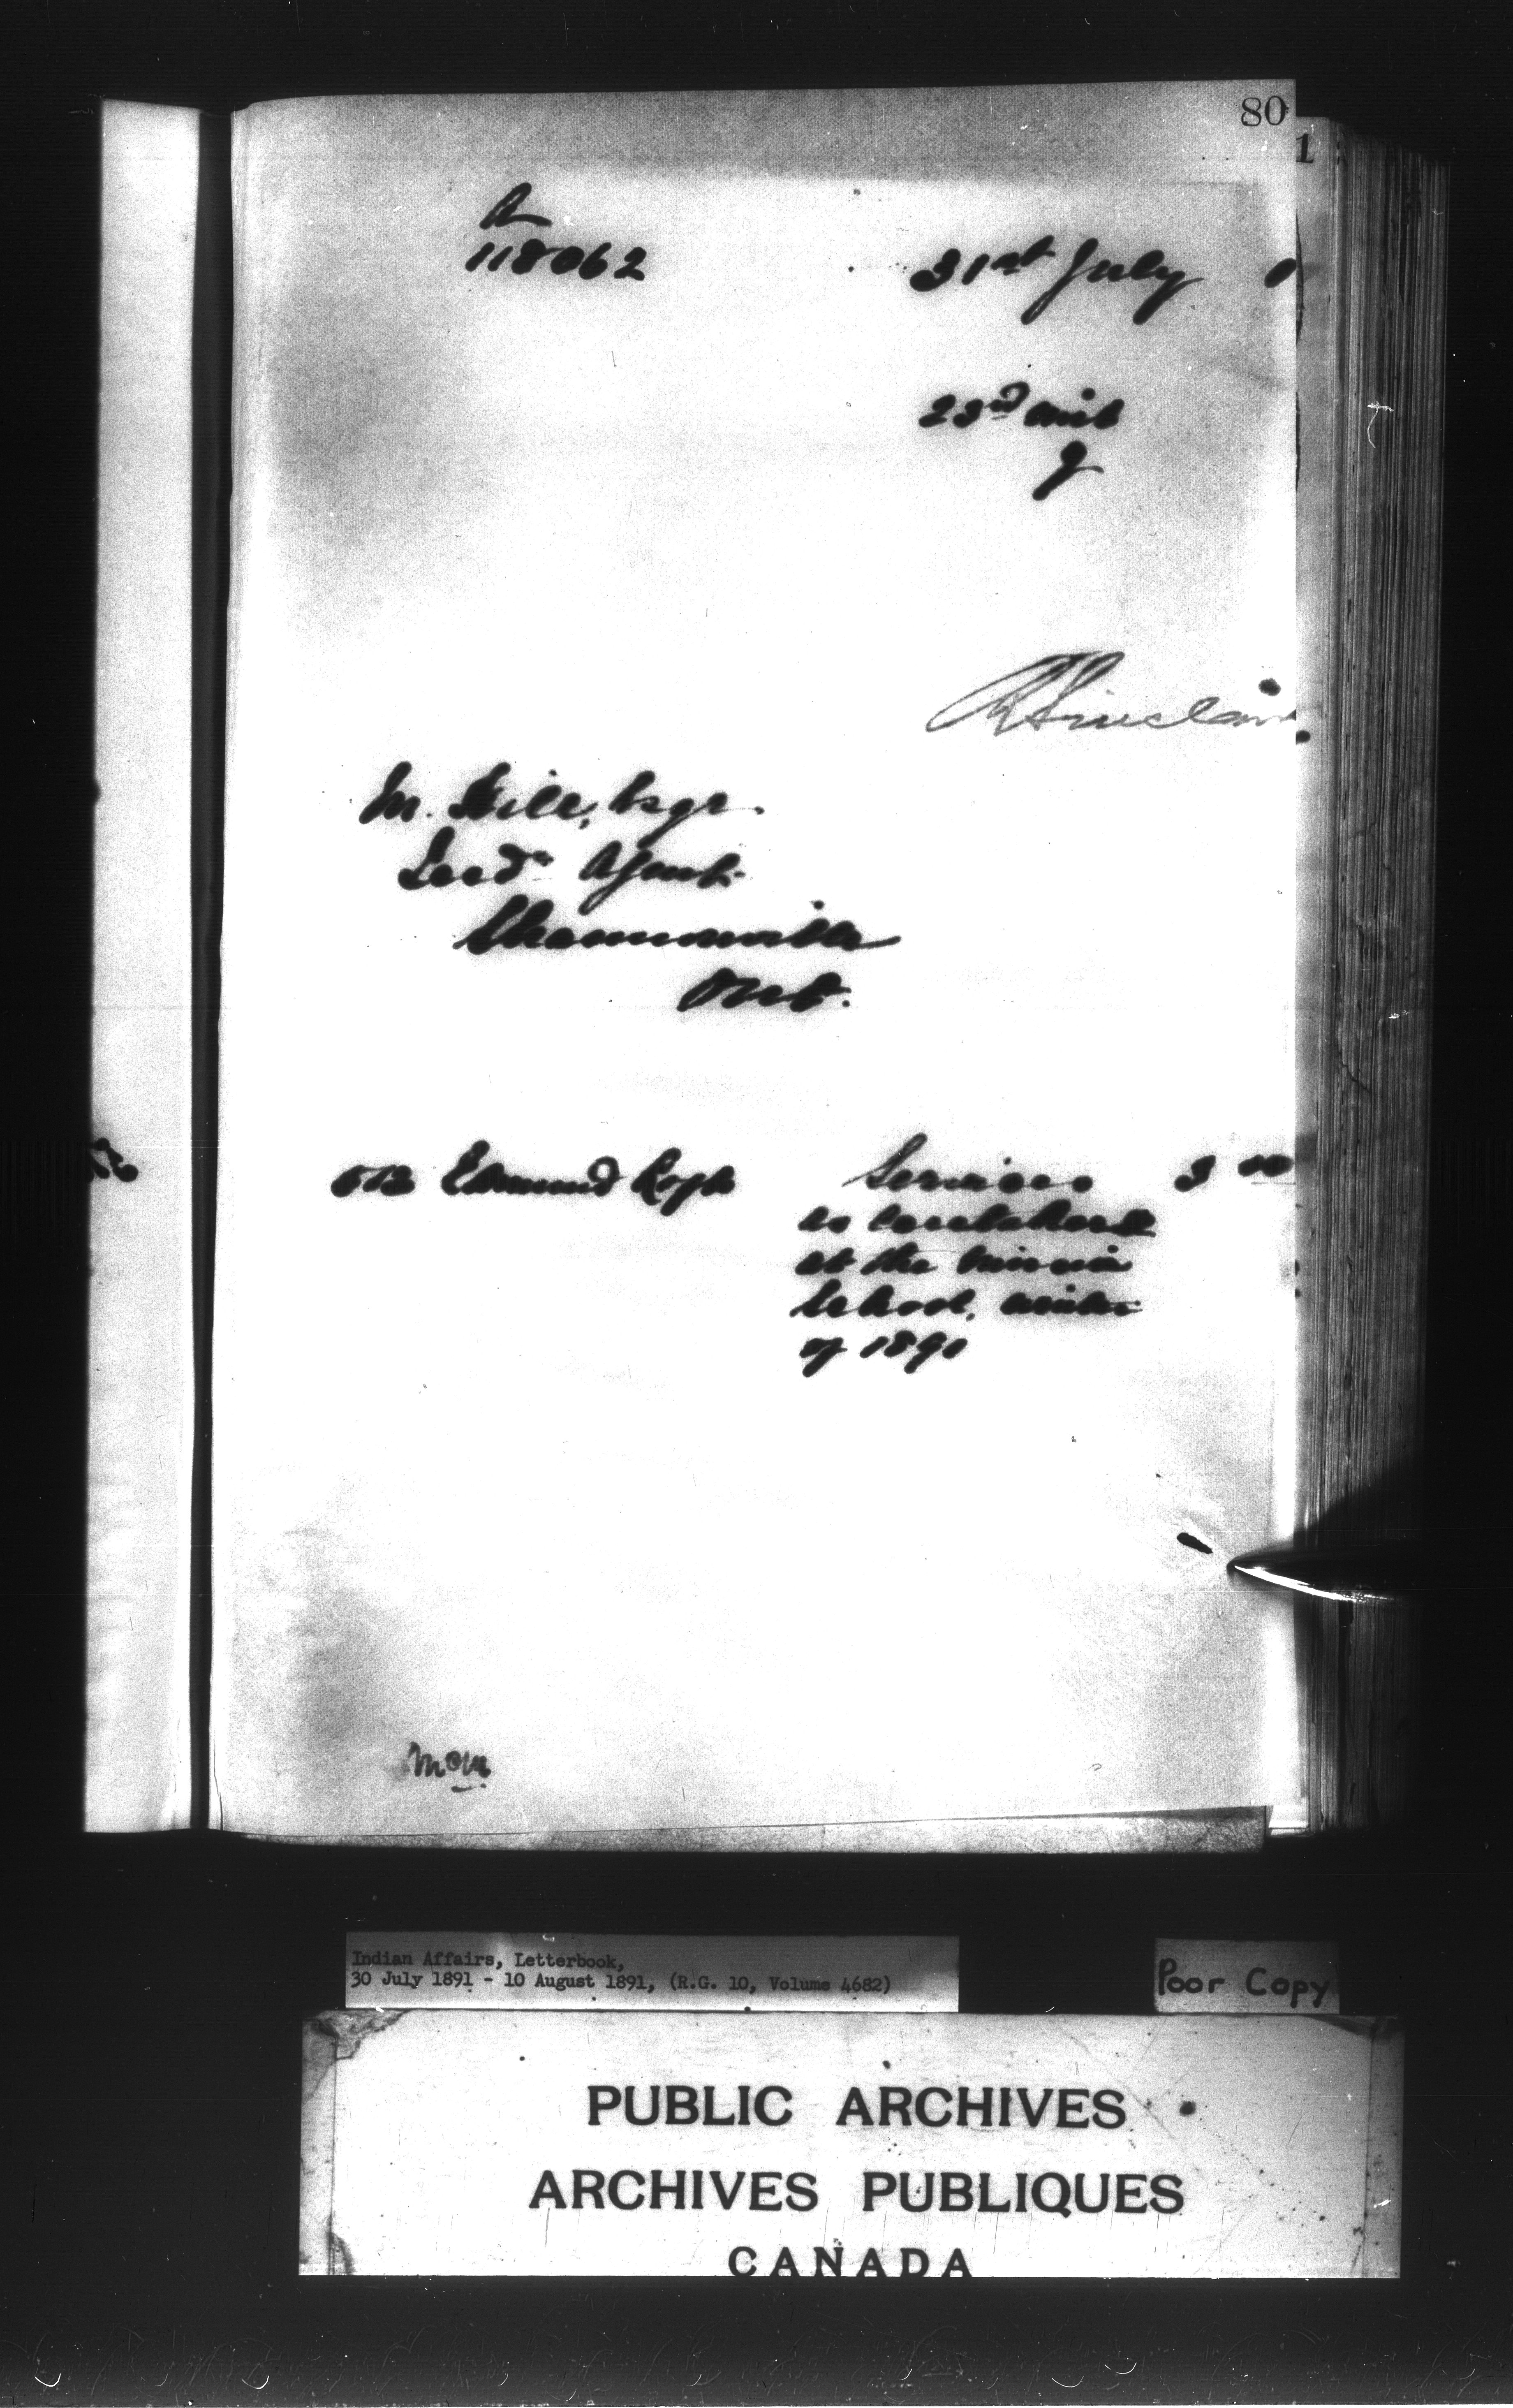 80
1
A
118062
31st July 1
23rd ult
R Sinclair
M. Hill, Esqr.
Ind. Agent
Shannonville
Ont.
512 Edmund Services 3 00
as caretaker
at the Mission
School, winter
of 1891
Indian Affairs, Letterbook,
30 July 1891 - 10 August 1891, (R.G. 10, Volume 4682)
Poor Copy
PUBLIC ARCHIVES
ARCHIVES PUBLIQUES
CANADA